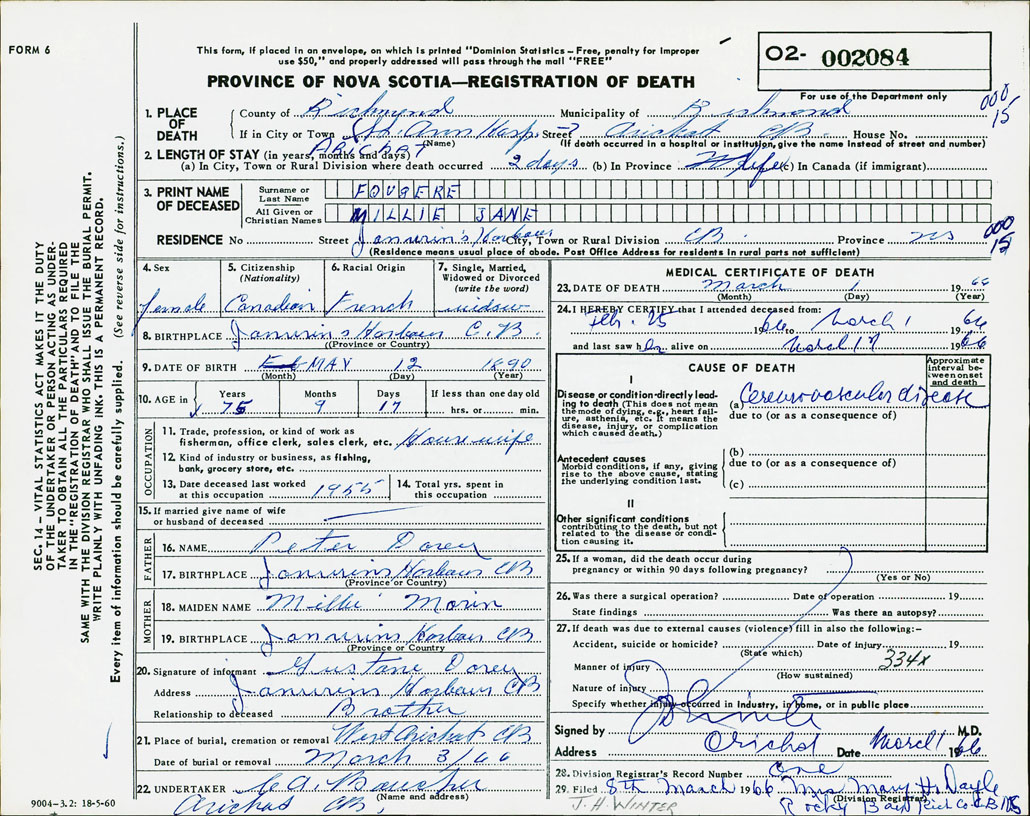 FORM 6
This form, if placed in an envelope, on which is printed "Dominion Statistics – Free, penalty for improper
use $50," and properly addressed will pass through the mail "FREE"
PROVINCE OF NOVA SCOTIA—REGISTRATION OF DEATH
02- 002084
For use of the Department only
000
15
SEC. 14 – VITAL STATISTICS ACT MAKES IT THE DUTY
OF THE UNDERTAKER OR PERSON ACTING AS UNDER-
TAKER TO OBTAIN ALL THE PARTICULARS REQUIRED
IN THE "REGISTRATION OF DEATH" AND TO FILE THE
SAME WITH THE DIVISION REGISTRAR WHO SHALL ISSUE THE BURIAL PERMIT.
WRITE PLAINLY WITH UNFADING INK. THIS IS A PERMANENT RECORD.
Every item of information should be carefully supplied. (See reverse side for instructions.)
1. PLACE OF DEATH
County of Richmond Municipality of Richmond
If in City or Town St. Ann Hosp. Street Arichat CB House No.
(Name) (If death occurred in a hospital or institution, give the name instead of street and number)
ARICHAT
2. LENGTH OF STAY (in years, months and days)
(a) In City, Town or Rural Division where death occurred 2 days (b) In Province Life (c) In Canada (if immigrant)
3. PRINT NAME OF DECEASED
Surname or Last Name FOUGERE
All Given or Christian Names MILLIE JANE
RESIDENCE No Street Janvrin's Harbour City, Town or Rural Division CB. Province NS
000
15
(Residence means usual place of abode. Post Office Address for residents in rural parts not sufficient)
4. Sex female
5. Citizenship (Nationality) Canadian
6. Racial Origin French
7. Single, Married, Widowed or Divorced (write the word) widow
8. BIRTHPLACE Janvrin's Harbour C.B.
(Province or Country)
9. DATE OF BIRTH MAY 12 1890
(Month) (Day) (Year)
10. AGE in Years 75 Months 9 Days 17 If less than one day old hrs. or min.
OCCUPATION
11. Trade, profession, or kind of work as
fisherman, office clerk, sales clerk, etc. Housewife
12. Kind of industry or business, as fishing,
bank, grocery store, etc.
13. Date deceased last worked at this occupation 1955
14. Total yrs. spent in this occupation
15. If married give name of wife
or husband of deceased
FATHER
16. NAME Peter Dorey
17. BIRTHPLACE Janvrins Harbour CB
(Province or Country)
MOTHER
18. MAIDEN NAME Millie Morin
19. BIRTHPLACE Janvrins Harbour CB
(Province or Country)
20. Signature of informant Gustave Dorey
Address Janvrins Harbour CB
Relationship to deceased Brother
21. Place of burial, cremation or removal West Arichat CB
Date of burial or removal March 3/66
22. UNDERTAKER C A Boucher
(Name and address)
Arichat CB
9004–3.2: 18-5-60
MEDICAL CERTIFICATE OF DEATH
23. DATE OF DEATH March 1 1966
(Month) (Day) (Year)
24. I HEREBY CERTIFY that I attended deceased from:
Feb. 25 1966 to March 1 1966
and last saw her alive on March 1st 1966
CAUSE OF DEATH
Approximate interval between onset and death
I
Disease or condition directly lead-
ing to death (This does not mean
the mode of dying, e.g., heart fail-
ure, asthenia, etc. It means the
disease, injury, or complication
which caused death.)
(a) Cerebrovascular disease
due to (or as a consequence of)
Antecedent causes
Morbid conditions, if any, giving
rise to the above cause, stating
the underlying condition last.
(b)
due to (or as a consequence of)
(c)
II
Other significant conditions
contributing to the death, but not
related to the disease or condi-
tion causing it.
25. If a woman, did the death occur during
pregnancy or within 90 days following pregnancy?
(Yes or No)
26. Was there a surgical operation? Date of operation 19
State findings Was there an autopsy?
27. If death was due to external causes (violence) fill in also the following:–
Accident, suicide or homicide? Date of injury 19
(State which)
334X
Manner of injury
(How sustained)
Nature of injury
Specify whether injury occurred in industry, in home, or in public place
Signed by M.D.
Address Arichat Date March 1 1966
28. Division Registrar's Record Number one
29. Filed 8th March 1966 Mrs Mary H. Doyle
(Division Registrar)
J. H. WINTER Rocky Bay Rich Co CB NS